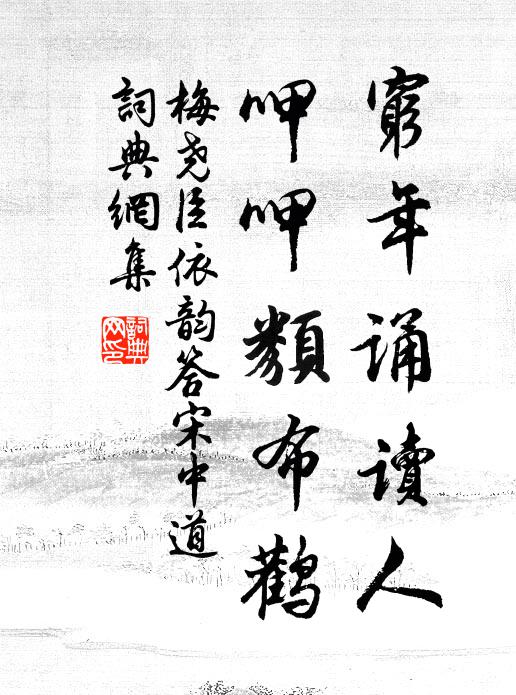 窮年誦讀人
呷呷類布鸛
梅尧臣依韵答宋中道
詞典網集
詞典
网印